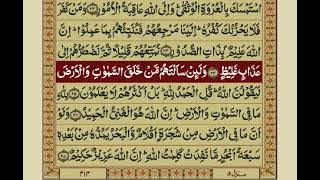 اسْتَمْسَكَ بِالْعُرْوَةِ الْوُثْقٰى ؕ وَاِلَى اللّٰهِ عَاقِبَةُ الْاُمُوْرِ ﴿۲۲﴾ وَمَنْ كَفَرَ
فَلَا يَحْزُنْكَ كُفْرُهٗ ؕ اِلَيْنَا مَرْجِعُهُمْ فَنُنَبِّئُهُمْ بِمَا عَمِلُوْا ؕ اِنَّ
اللّٰهَ عَلِيْمٌۢ بِذَاتِ الصُّدُوْرِ ﴿۲۳﴾ نُمَتِّعُهُمْ قَلِيْلًا ثُمَّ نَضْطَرُّهُمْ اِلٰى
عَذَابٍ غَلِيْظٍ ﴿۲۴﴾ وَلَئِنْ سَاَلْتَهُمْ مَّنْ خَلَقَ السَّمٰوٰتِ وَالْاَرْضَ
لَيَقُوْلُنَّ اللّٰهُ ؕ قُلِ الْحَمْدُ لِلّٰهِ ؕ بَلْ اَكْثَرُهُمْ لَا يَعْلَمُوْنَ ﴿۲۵﴾ لِلّٰهِ
مَا فِى السَّمٰوٰتِ وَالْاَرْضِ ؕ اِنَّ اللّٰهَ هُوَ الْغَنِىُّ الْحَمِيْدُ ﴿۲۶﴾ وَلَوْ
اَنَّ مَا فِى الْاَرْضِ مِنْ شَجَرَةٍ اَقْلَامٌ وَّالْبَحْرُ يَمُدُّهٗ مِنْۢ بَعْدِهٖ
سَبْعَةُ اَبْحُرٍ مَّا نَفِدَتْ كَلِمٰتُ اللّٰهِ ؕ اِنَّ اللّٰهَ عَزِيْزٌ حَكِيْمٌ ﴿۲۷﴾
منزل ۵
۴۱۴